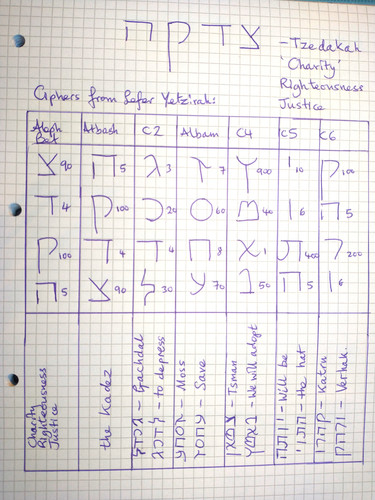 צדקה - Tzedakah
'Charity'
Righteousness
Justice
Ciphers from Sefer Yetzirah:
Aleph Bet Atbash C2 Albam C4 C5 C6
צ 90 ה 5 ג 3 ז 7 ץ 900 י 10 ק 100
ד 4 ק 100 כ 20 ס 60 מ 40 ו 6 ה 5
ק 100 ד 4 ד 4 ח 8 א 1 ת 400 ר 200
ה 5 צ 90 ל 30 ע 70 נ 50 ה 5 ו 6
Charity
Righteousness
Justice
the Kadez
- Gachdal
- to depress
- Moss
- Save
- Tsman
- We will adopt
- Will be
- the hat
- Katru
- Verhak.